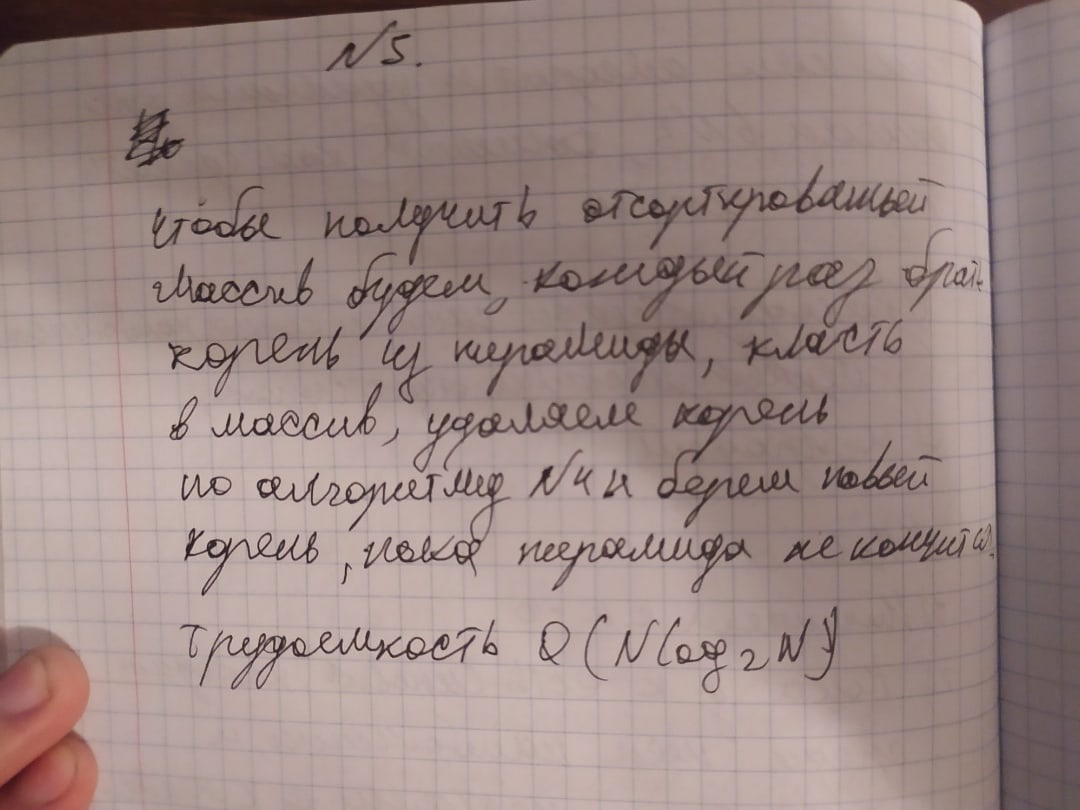 N5.
чтобы получить отсортированный
массив будем, каждый раз брать
корень из пирамиды, класть
в массив, удаляем корень
по алгоритму N4 и берем новый
корень, пока пирамида не кончится.
Трудоемкость O(Nlog₂N)